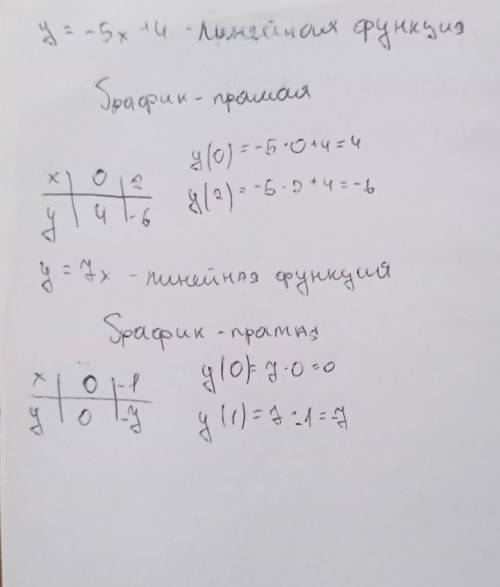 y = -5x +4 - линейная функция
График - прямая
y(0) = -5 · 0 + 4 = 4
x | 0 | 2
y(2) = -5 · 2 + 4 = -6
y | 4 | -6
y = 7x - линейная функций
График - прямая
x | 0 | -1
y(0) = 7 · 0 = 0
y | 0 | -7
y(1) = 7 · -1 = -7